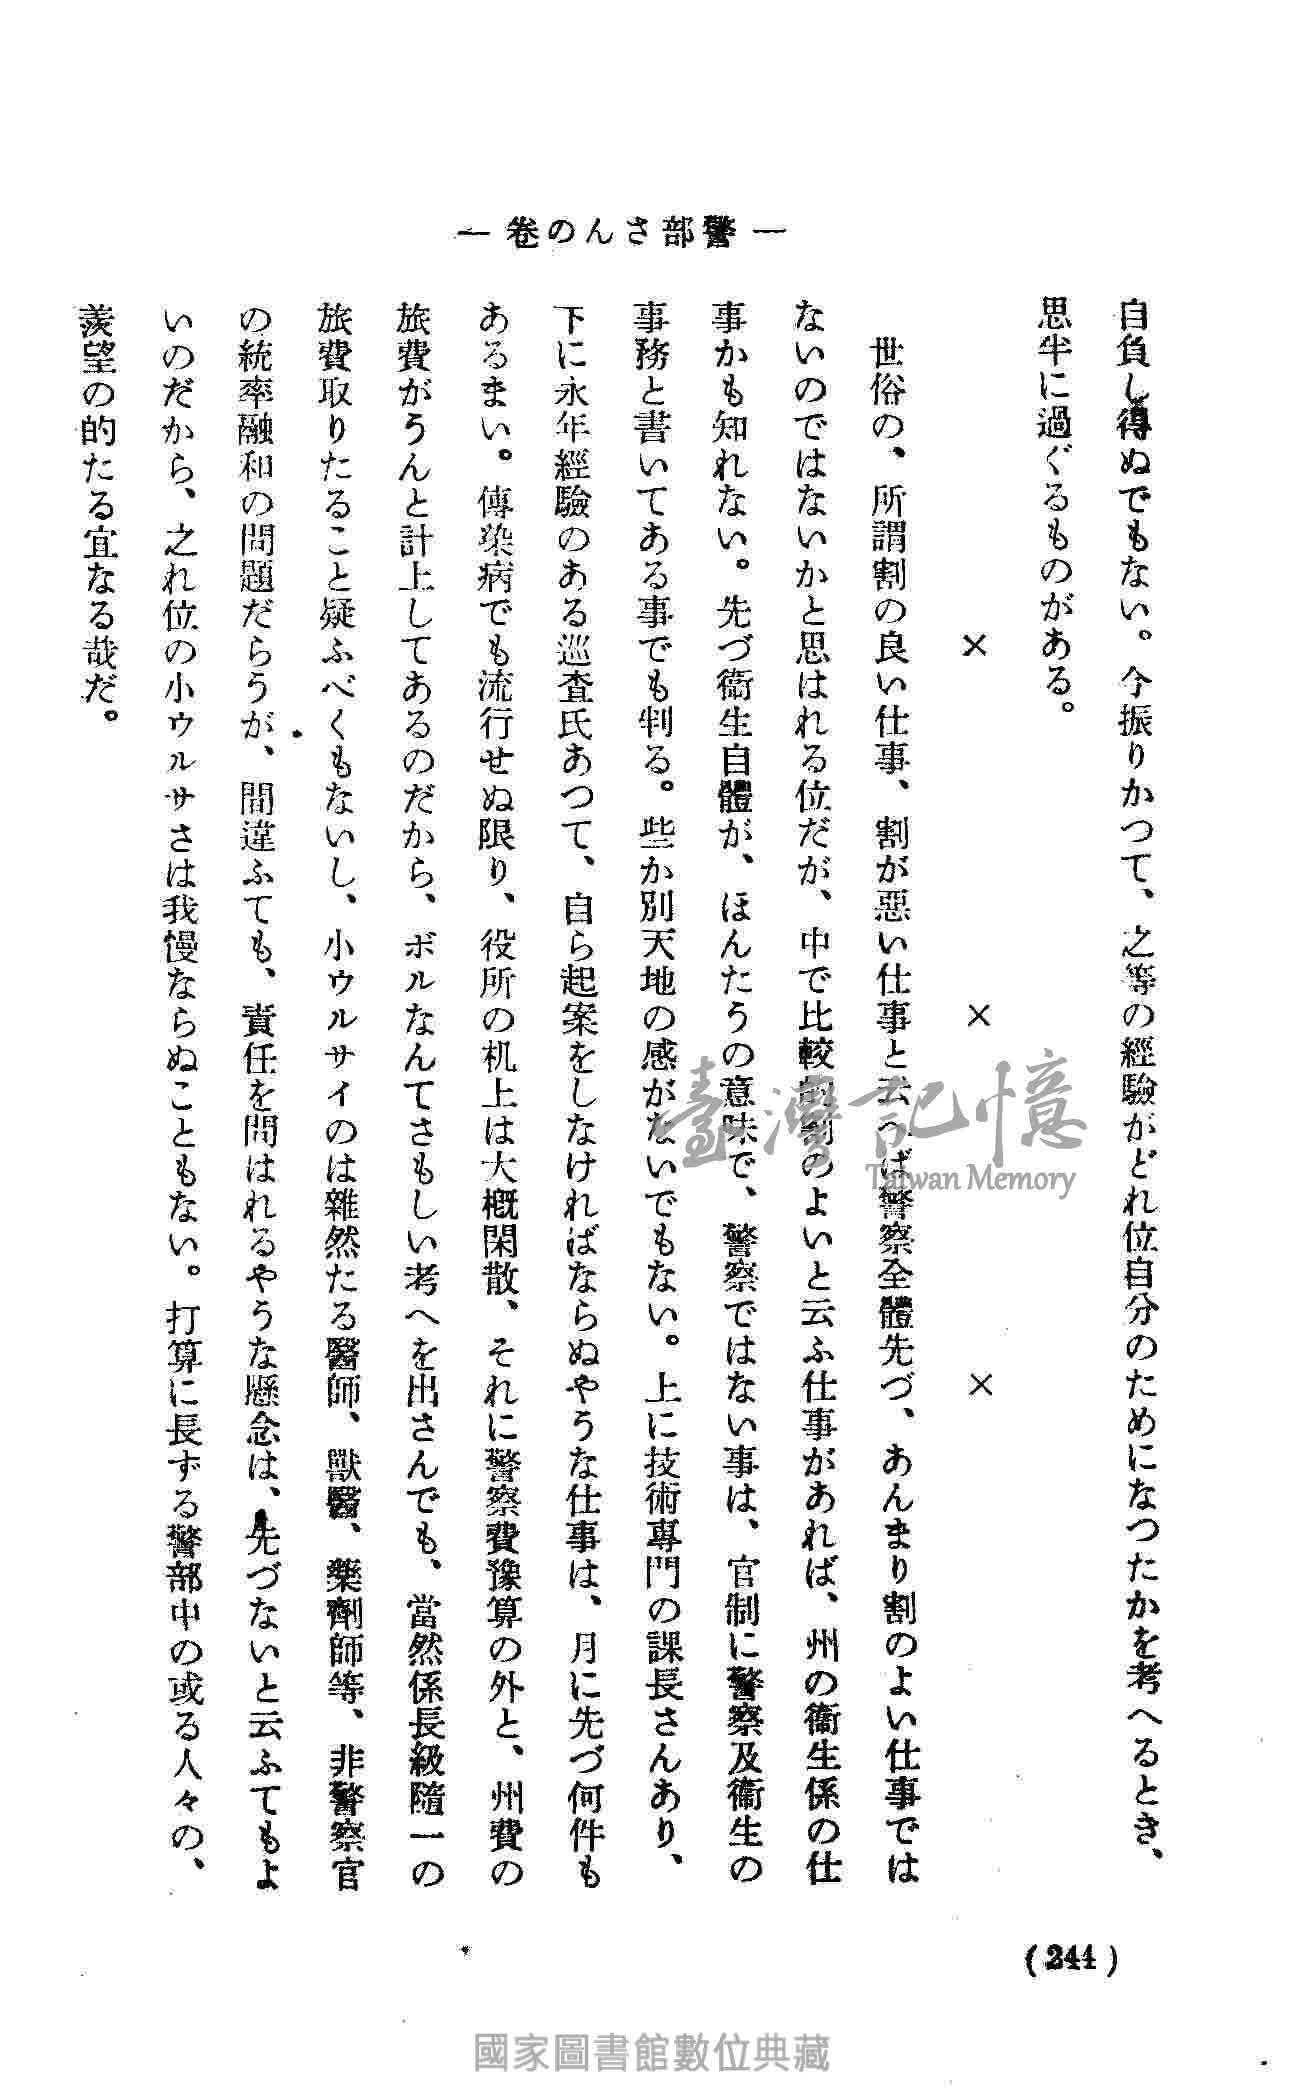 ― 警部さんの卷 ―
自負し得ぬでもない。今振りかつて、之等の經驗がどれ位自分のためになつたかを考へるとき、
思半に過ぐるものがある。
×　×　×
世俗の、所謂割の良い仕事、割が惡い仕事と云へば警察全體先づ、あんまり割のよい仕事では
ないのではないかと思はれる位だが、中で比較的割のよいと云ふ仕事があれば、州の衞生係の仕
事かも知れない。先づ衞生自體が、ほんたうの意味で、警察ではない事は、官制に警察及衞生の
事務と書いてある事でも判る。些か別天地の感がないでもない。上に技術專門の課長さんあり、
下に永年經驗のある巡査氏あつて、自ら起案をしなければならぬやうな仕事は、月に先づ何件も
あるまい。傳染病でも流行せぬ限り、役所の机上は大槪閑散、それに警察費豫算の外と、州費の
旅費がうんと計上してあるのだから、ボルなんてさもしい考へを出さんでも、當然係長級隨一の
旅費取りたること疑ふべくもないし、小ウルサイのは雜然たる醫師、獸醫、藥劑師等、非警察官
の統率融和の問題だらうが、間違ふても、責任を問はれるやうな懸念は、先づないと云ふてもよ
いのだから、之れ位の小ウルサさは我慢ならぬこともない。打算に長ずる警部中の或る人々の、
羨望の的たる宜なる哉だ。
(244)
臺灣記憶
Taiwan Memory
國家圖書館數位典藏